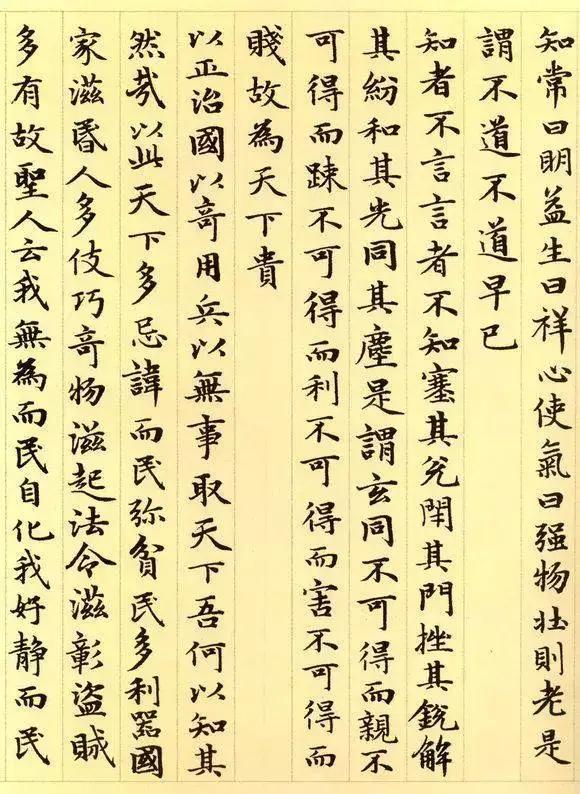 知常曰明益生曰祥心使氣曰强物壯則老是
謂不道不道早已
知者不言言者不知塞其兊閇其門挫其銳解
其紛和其光同其塵是謂玄同不可得而親不
可得而踈不可得而利不可得而害不可得而
賤故為天下貴
以正治國以竒用兵以無事取天下吾何以知其
然㢤以此天下多忌諱而民弥貧民多利器國
家滋昏人多伎巧竒物滋起法令滋彰盜賊
多有故聖人云我無為而民自化我好靜而民